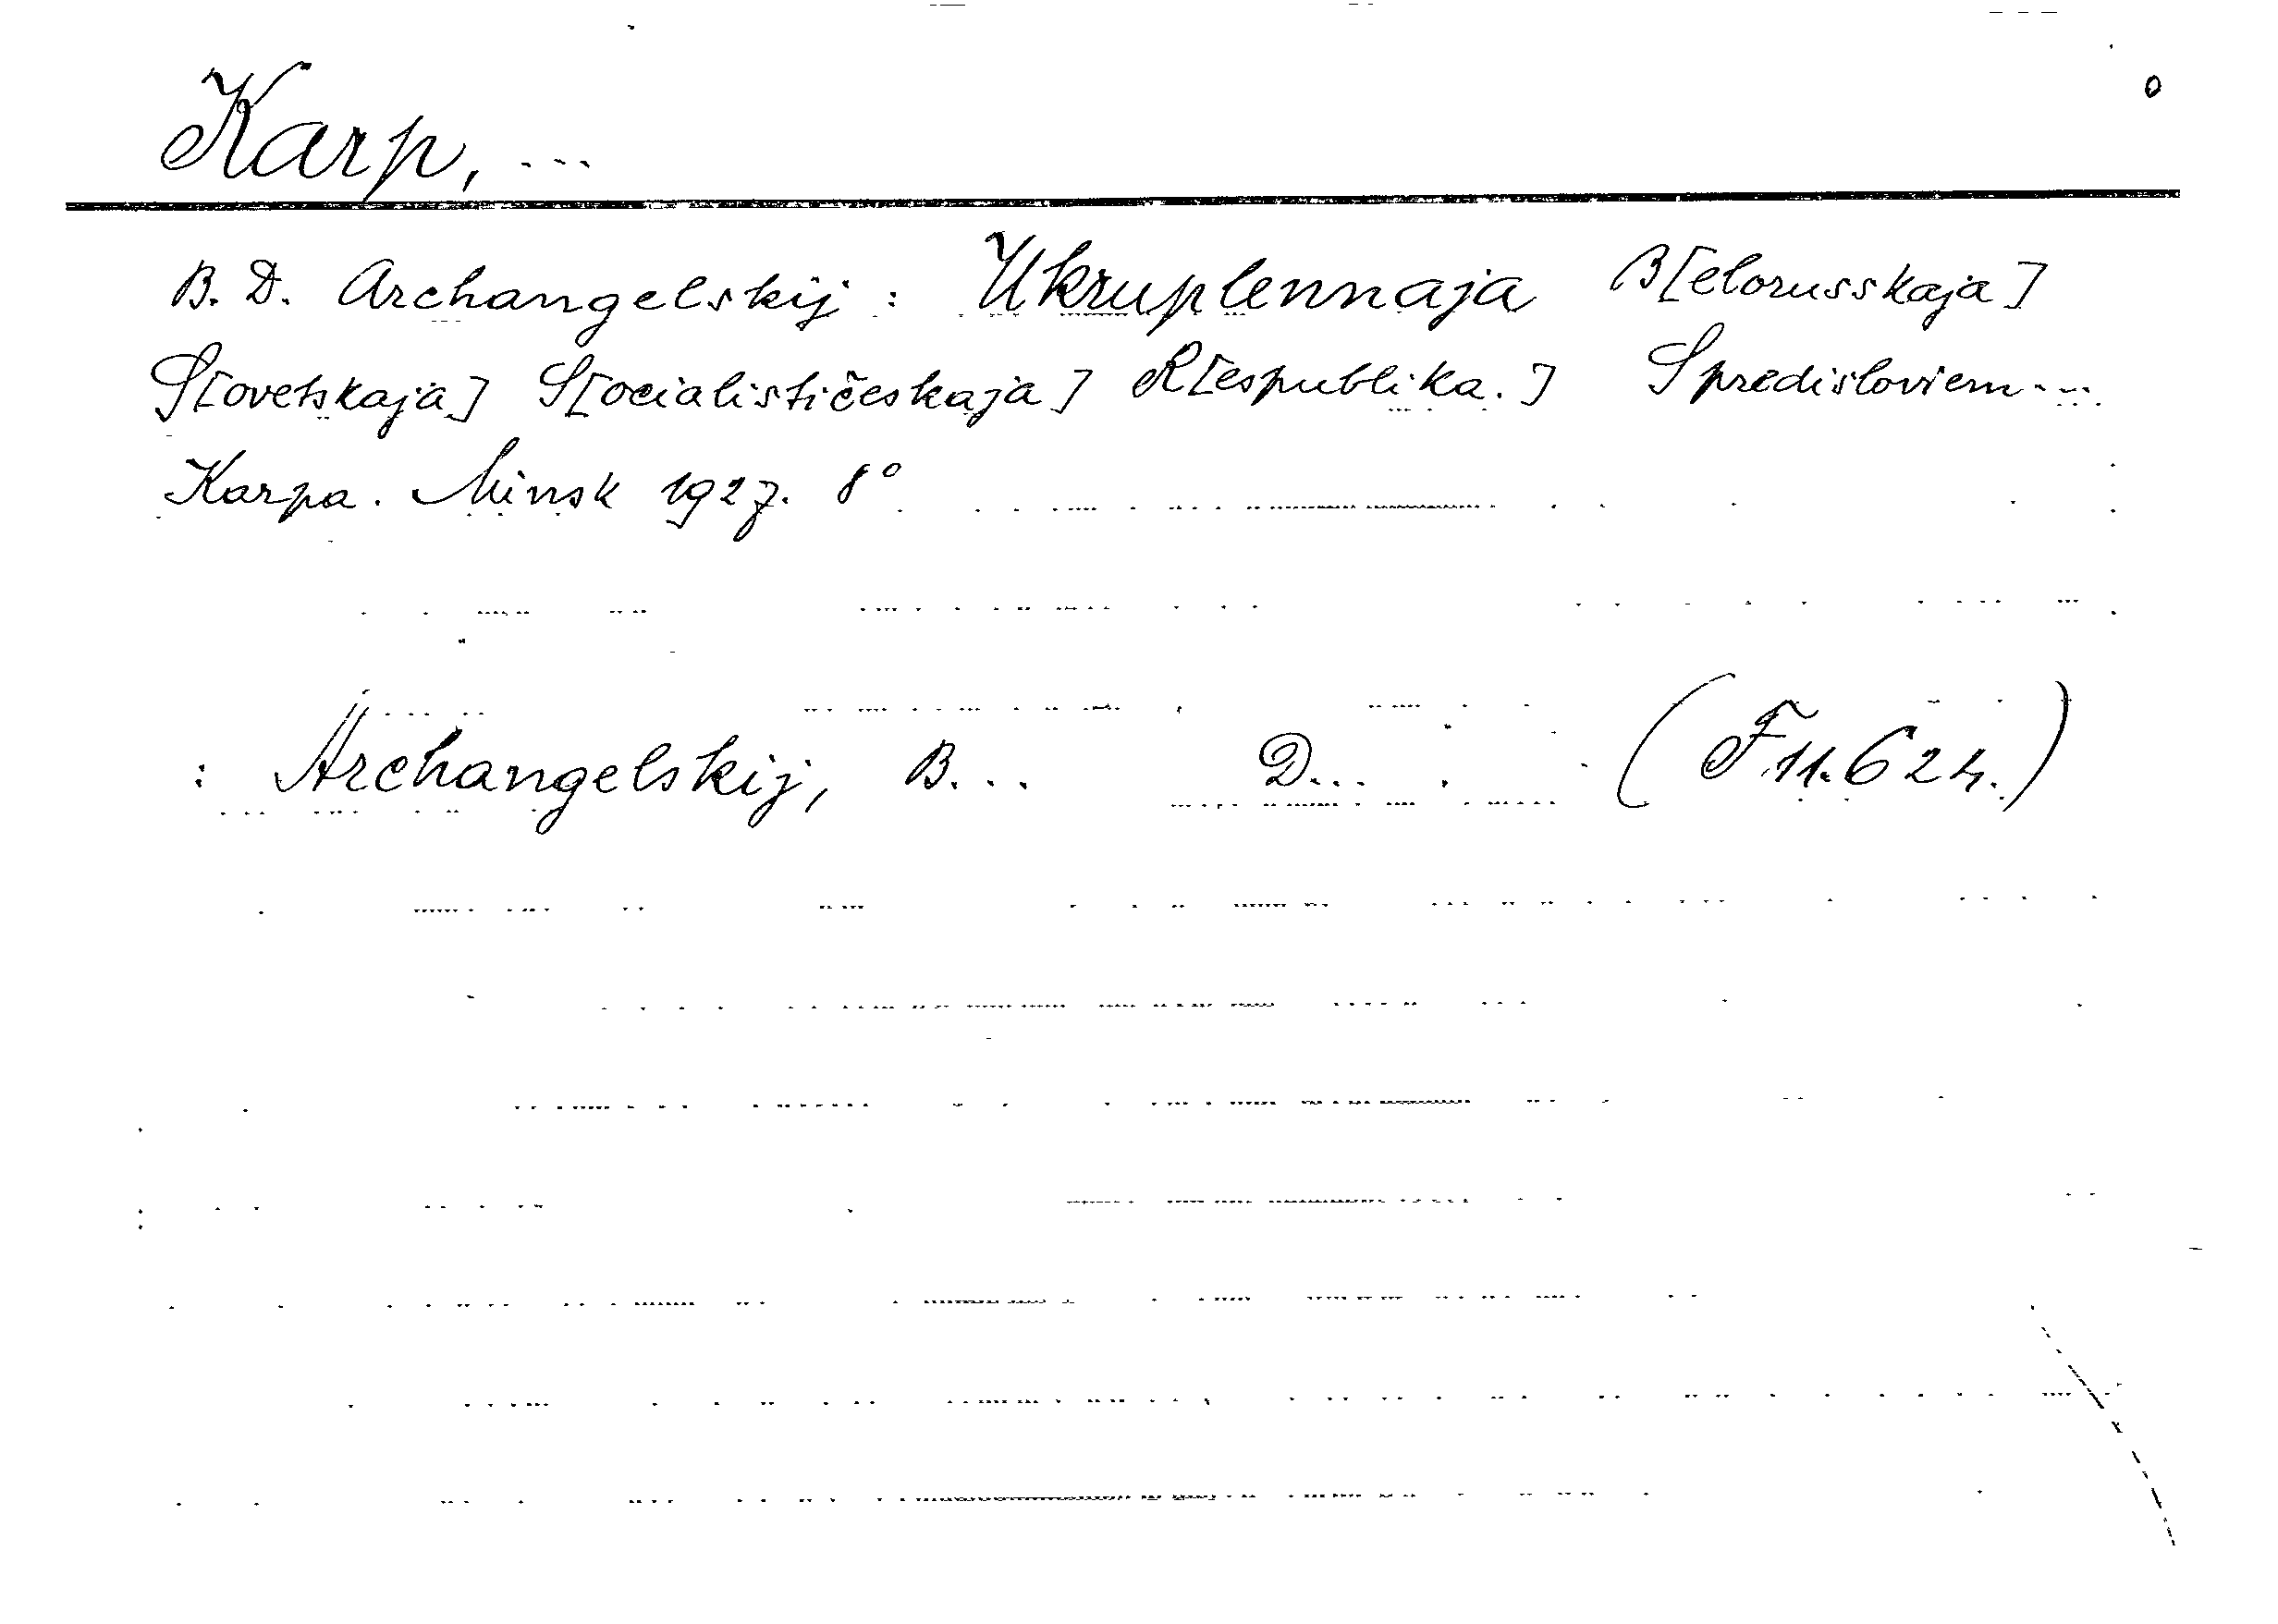 Karp, ...
o
B. D. Archangelskij: Ukruplennaja B[elorusskaja]
S[ovetskaja] S[ocialističeskaja] R[espublika.] S predisloviem...
Karpa. Minsk 1927. 8°
: Archangelskij, B... D... (F 11.624.)